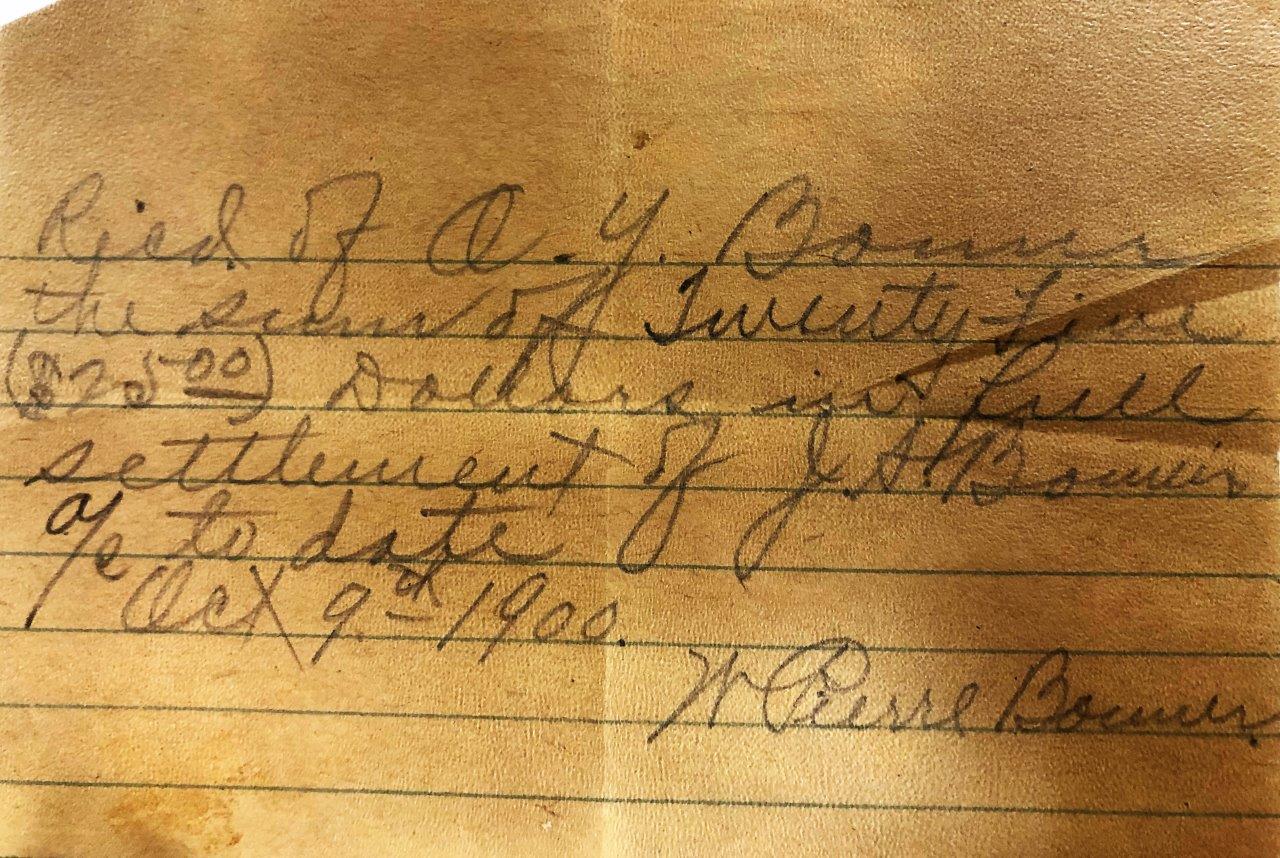 Ried. of O. Y. Bonner
the sum of Twenty-Five
($25 00) Dollars in full
settlement of J. A. Bonner
a/c to date
Oct 9th 1900.
W Pierre Bonner